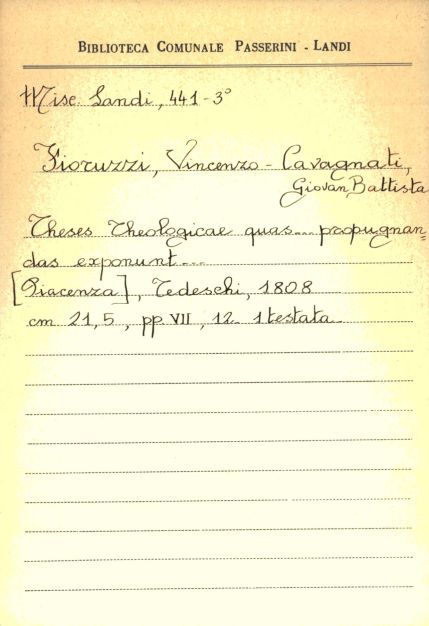 BIBLIOTECA COMUNALE PASSERINI - LANDI
Misc. Landi, 441-3°
Fioruzzi, Vincenzo - Cavagnati,
Giovan Battista
Theses Theologicae quas... propugnan=
das exponunt...
[Piacenza], Tedeschi, 1808
cm 21,5, pp. VII, 12 1 testata